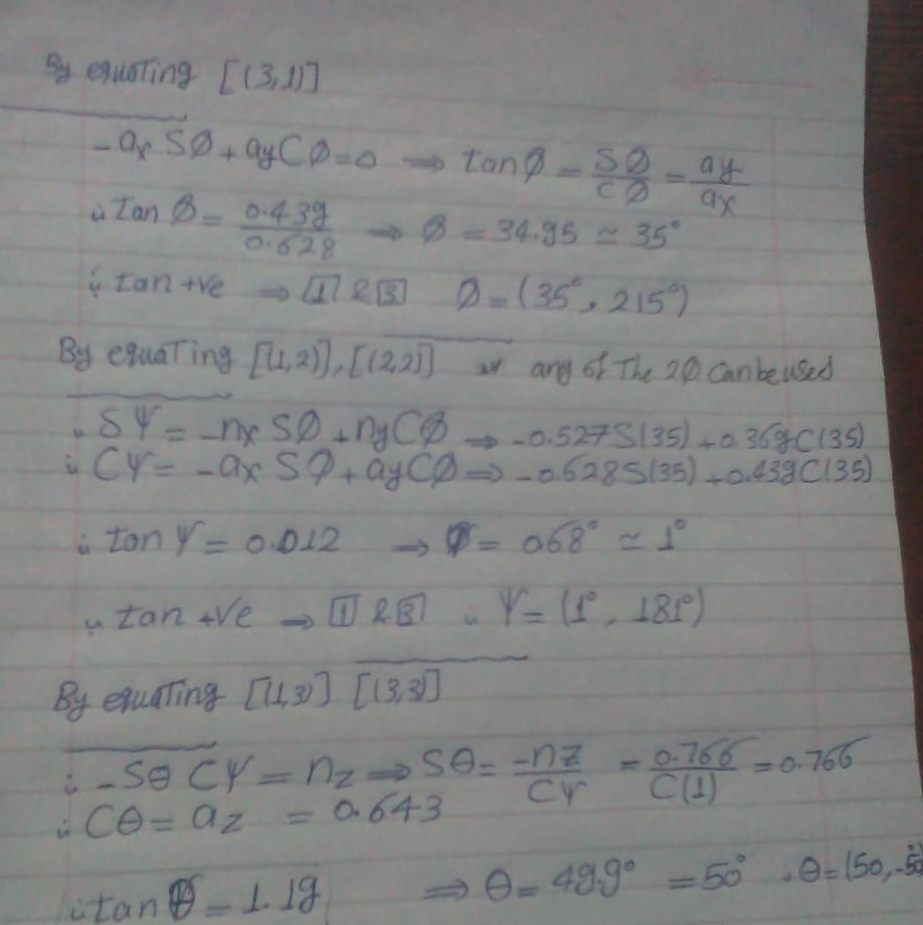 By equating [(3,1)]
-ax SØ + ayCØ = 0 ⇒ tanØ = SØ/CØ = ay/ax
∴ Tan Ø = 0.439/0.628 ⇒ Ø = 34.95 ≃ 35°
∵ tan +ve ⇒ [1] & [3] Ø = (35°, 215°)
By equating [(1,2)], [(2,2)] any of The 2Ø can be used
∴ SΨ = -nx SØ + nyCØ ⇒ -0.527S(35) + 0.369C(35)
∴ CΨ = -ax SØ + ayCØ ⇒ -0.628S(35) + 0.439C(35)
∴ tan Ψ = 0.012 ⇒ Ψ = 0.68° ≃ 1°
∵ tan +ve ⇒ [1] & [3] ∴ Ψ = (1°, 181°)
By equating [(1,3)] [(3,3)]
∴ -Sθ CΨ = nz ⇒ Sθ = -nz/CΨ = 0.766/C(1) = 0.766
∴ Cθ = az = 0.643
∴ tan θ = 1.19 ⇒ θ = 49.9° = 50° ∴ θ = (50, -50)